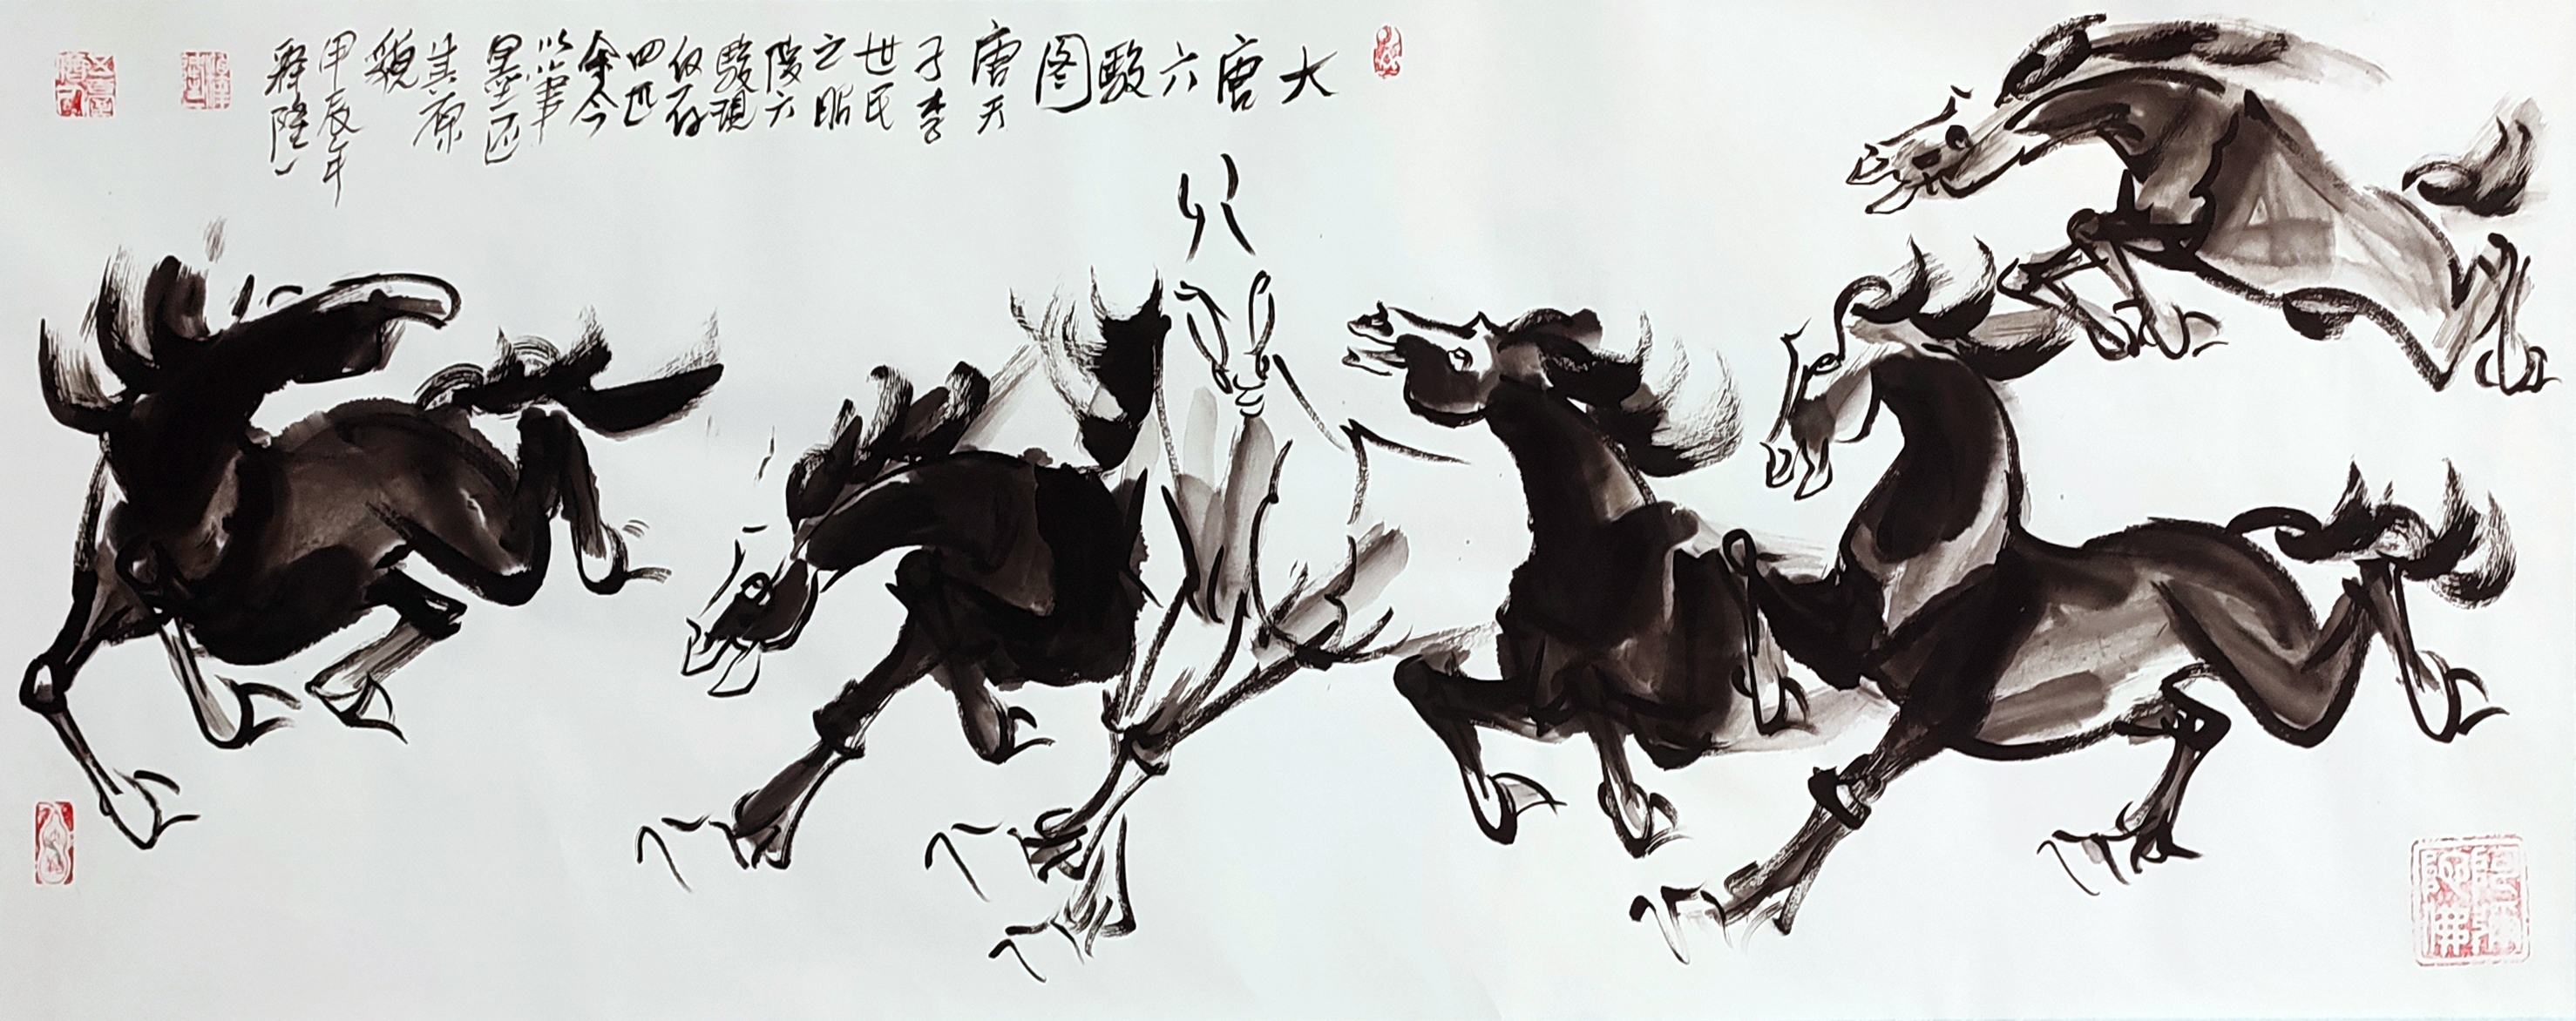 大唐六駿图
唐天
子李
世民
之昭
陵六
駿現
仅存
四匹
余今
以筆
墨
其原
貌
甲辰年
释隆
阿彌
陀佛